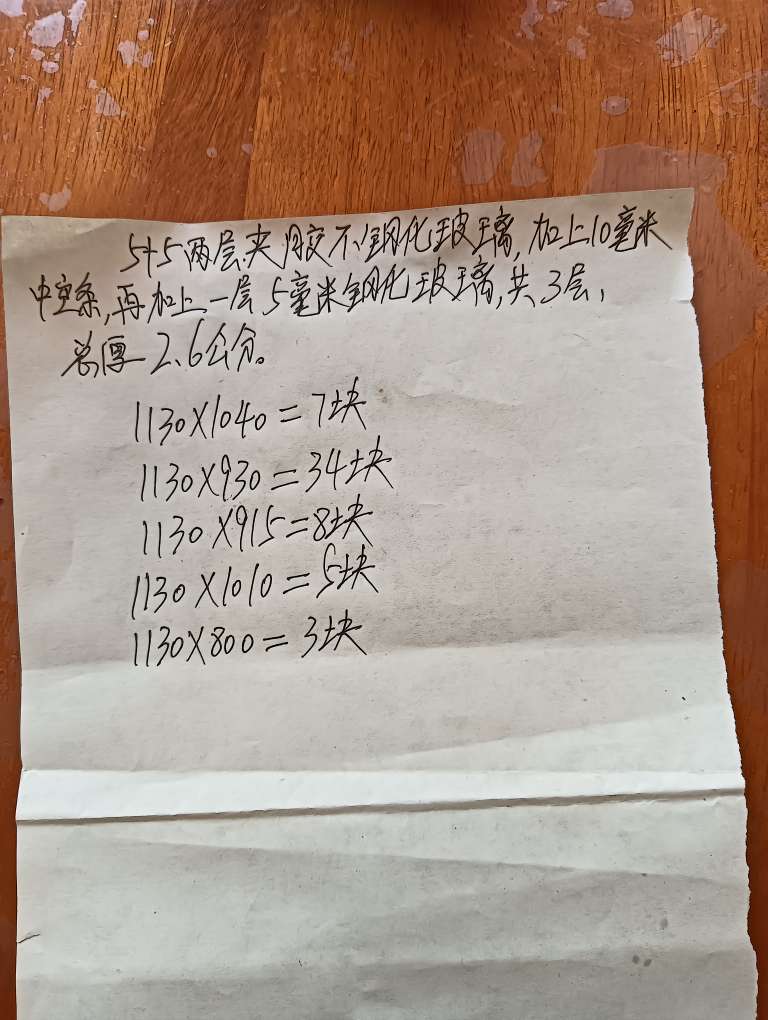 5+5两层夹胶不钢化玻璃,加上10毫米
中空条,再加上一层5毫米钢化玻璃,共3层,
总厚2.6公分。
1130X1040=7块
1130X930=34块
1130X915=8块
1130X1010=5块
1130X800=3块